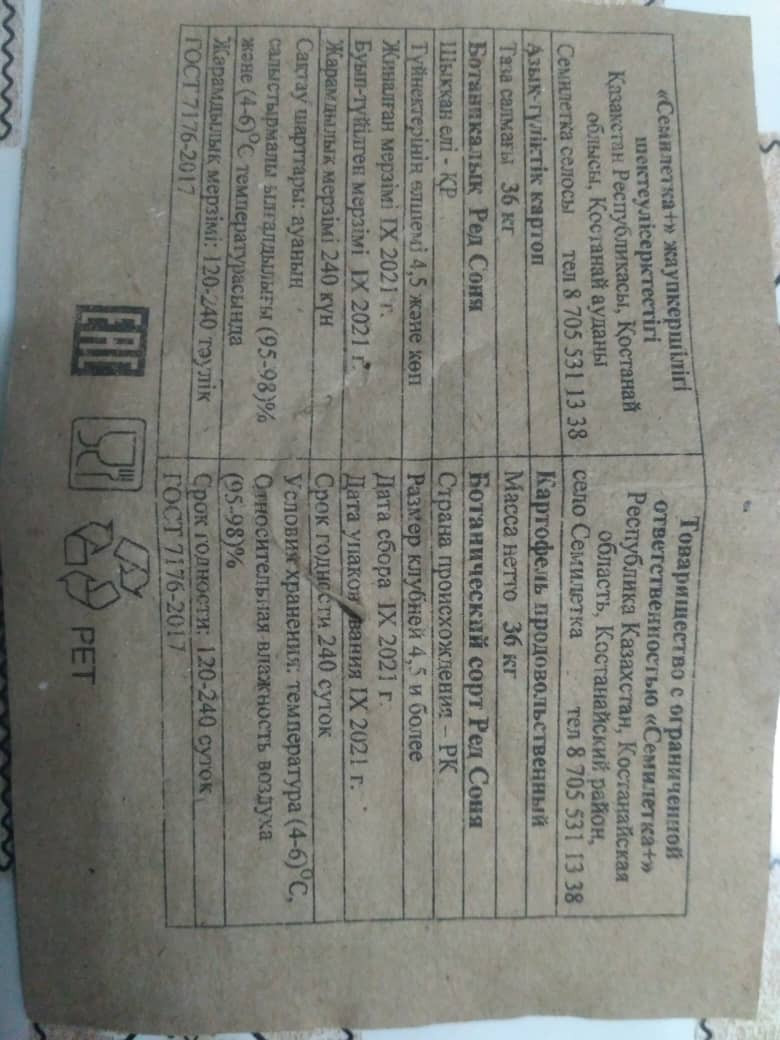 «Семилетка+» жаупкершілігі
шектеулісерктестігі
Қазақстан Республикасы, Қостанай
облысы, Қостанай ауданы
Семилетка селосы тел 8 705 531 13 38
Азық-түліктік картоп
Таза салмағы 36 кг
Ботаникалық Ред Соня
Шыққан елі - ҚР
Түйнектерінің өлшемі 4,5 және көп
Жиналған мерзімі IX 2021 г.
Буып-түйілген мерзімі IX 2021 г.
Жарамдылық мерзімі 240 күн
Сақтау шарттары: ауаның
салыстырмалы ылғалдылығы (95-98)%
және (4-6)⁰С температурасында
Жарамдылық мерзімі: 120-240 тәулік
ГОСТ 7176-2017
Товарищество с ограниченной
ответственностью «Семилетка+»
Республика Казахстан, Костанайская
область, Костанайский район,
село Семилетка тел 8 705 531 13 38
Картофель продовольственный
Масса нетто 36 кг
Ботанический сорт Ред Соня
Страна происхождения – РК
Размер клубней 4,5 и более
Дата сбора IX 2021 г.
Дата упаковывания IX 2021 г.
Срок годности 240 суток
Условия хранения: температура (4-6)⁰С,
Относительная влажность воздуха
(95-98)%
Срок годности: 120-240 суток
ГОСТ 7176-2017
ЕАС
PET